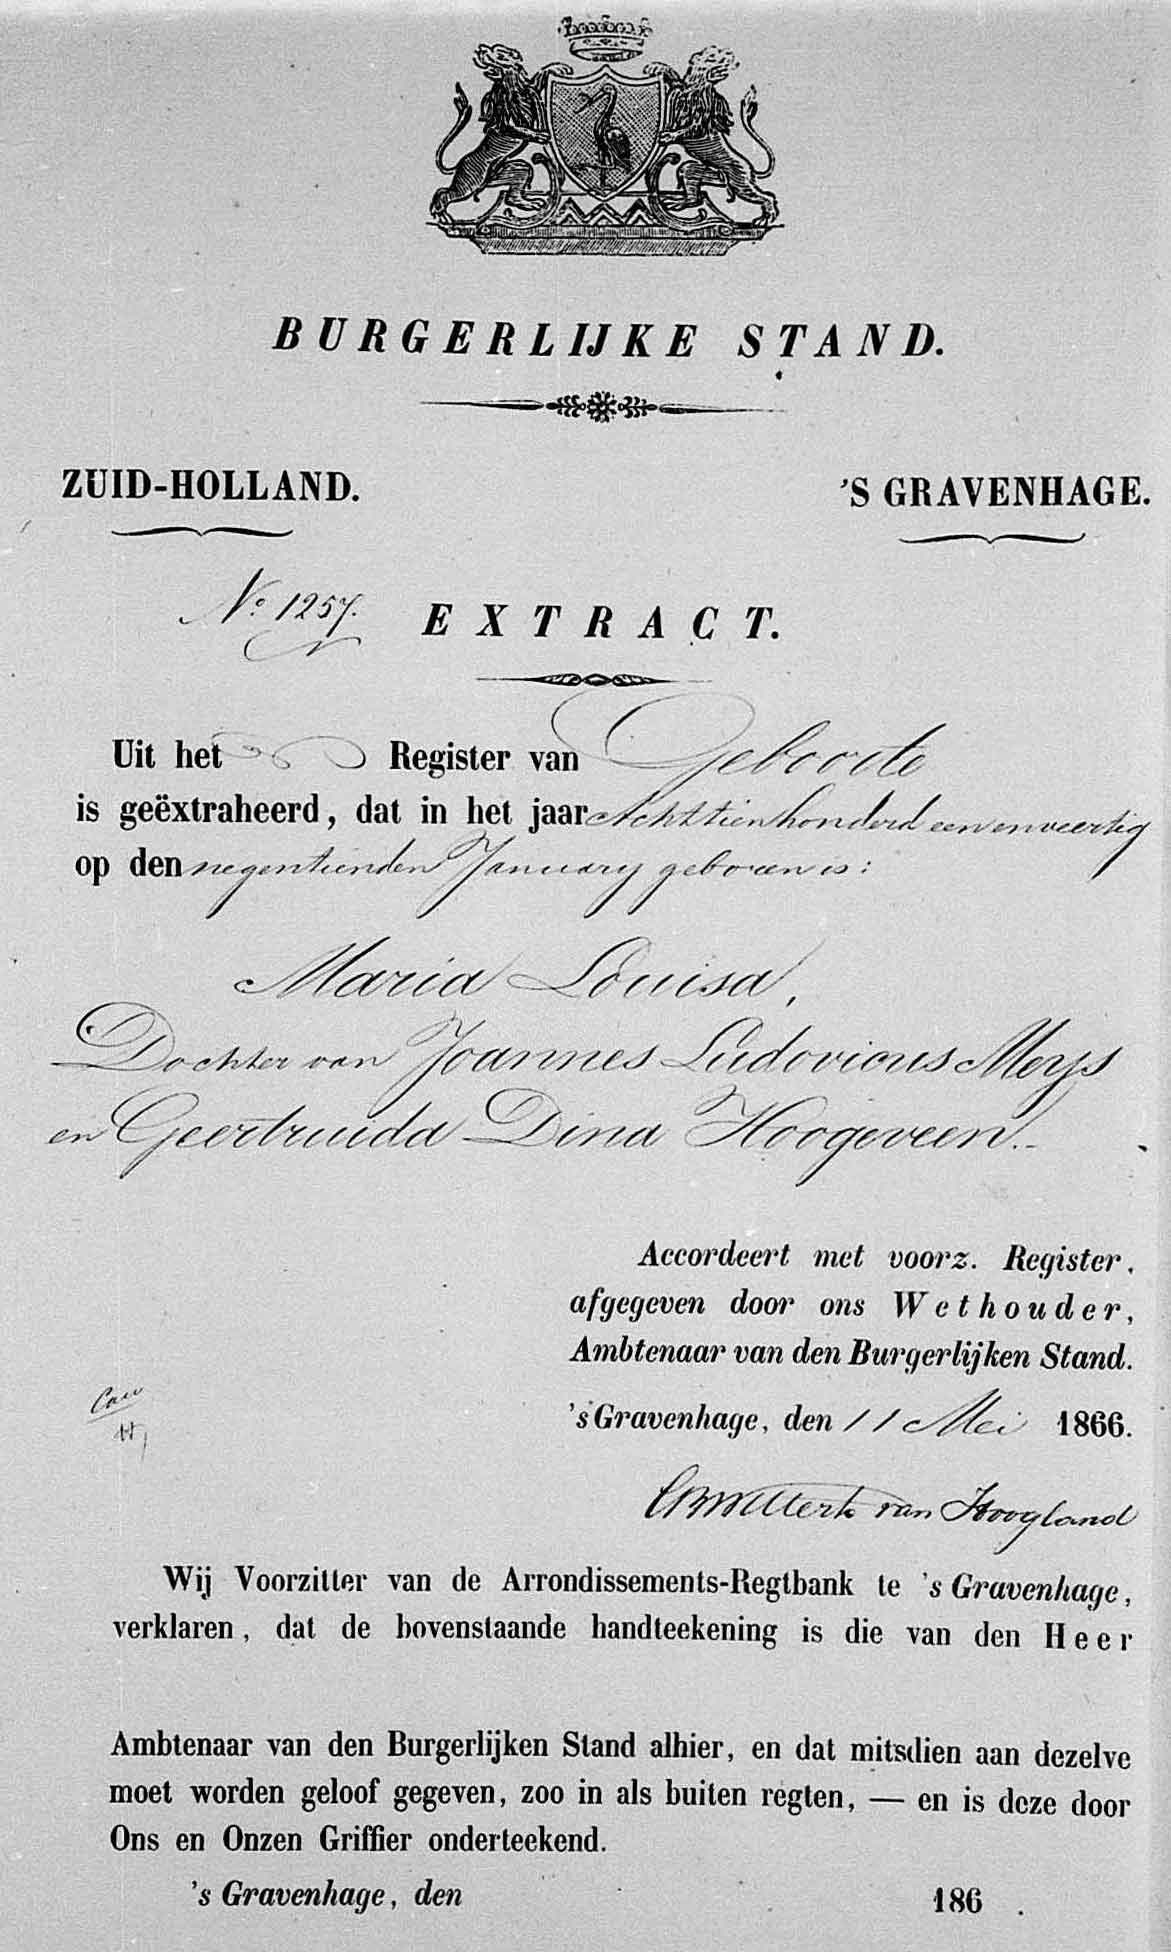 BURGERLIJKE STAND.
ZUID-HOLLAND.
'S GRAVENHAGE.
No. 1257.
EXTRACT.
Uit het Register van Geboorte
is geëxtraheerd, dat in het jaar Achttienhonderd een en veertig
op den negentienden January geboren is:
Maria Louisa,
Dochter van Joannes Ludovicus Meys
en Geertruida Dina Hoogeveen.
Accordeert met voorz. Register,
afgegeven door ons Wethouder,
Ambtenaar van den Burgerlijken Stand.
's Gravenhage, den 11 Mei 1866.
van Hoogland
Wij Voorzitter van de Arrondissements-Regtbank te 's Gravenhage,
verklaren, dat de bovenstaande handteekening is die van den Heer
Ambtenaar van den Burgerlijken Stand alhier, en dat mitsdien aan dezelve
moet worden geloof gegeven, zoo in als buiten regten, — en is deze door
Ons en Onzen Griffier onderteekend.
's Gravenhage, den 186 .